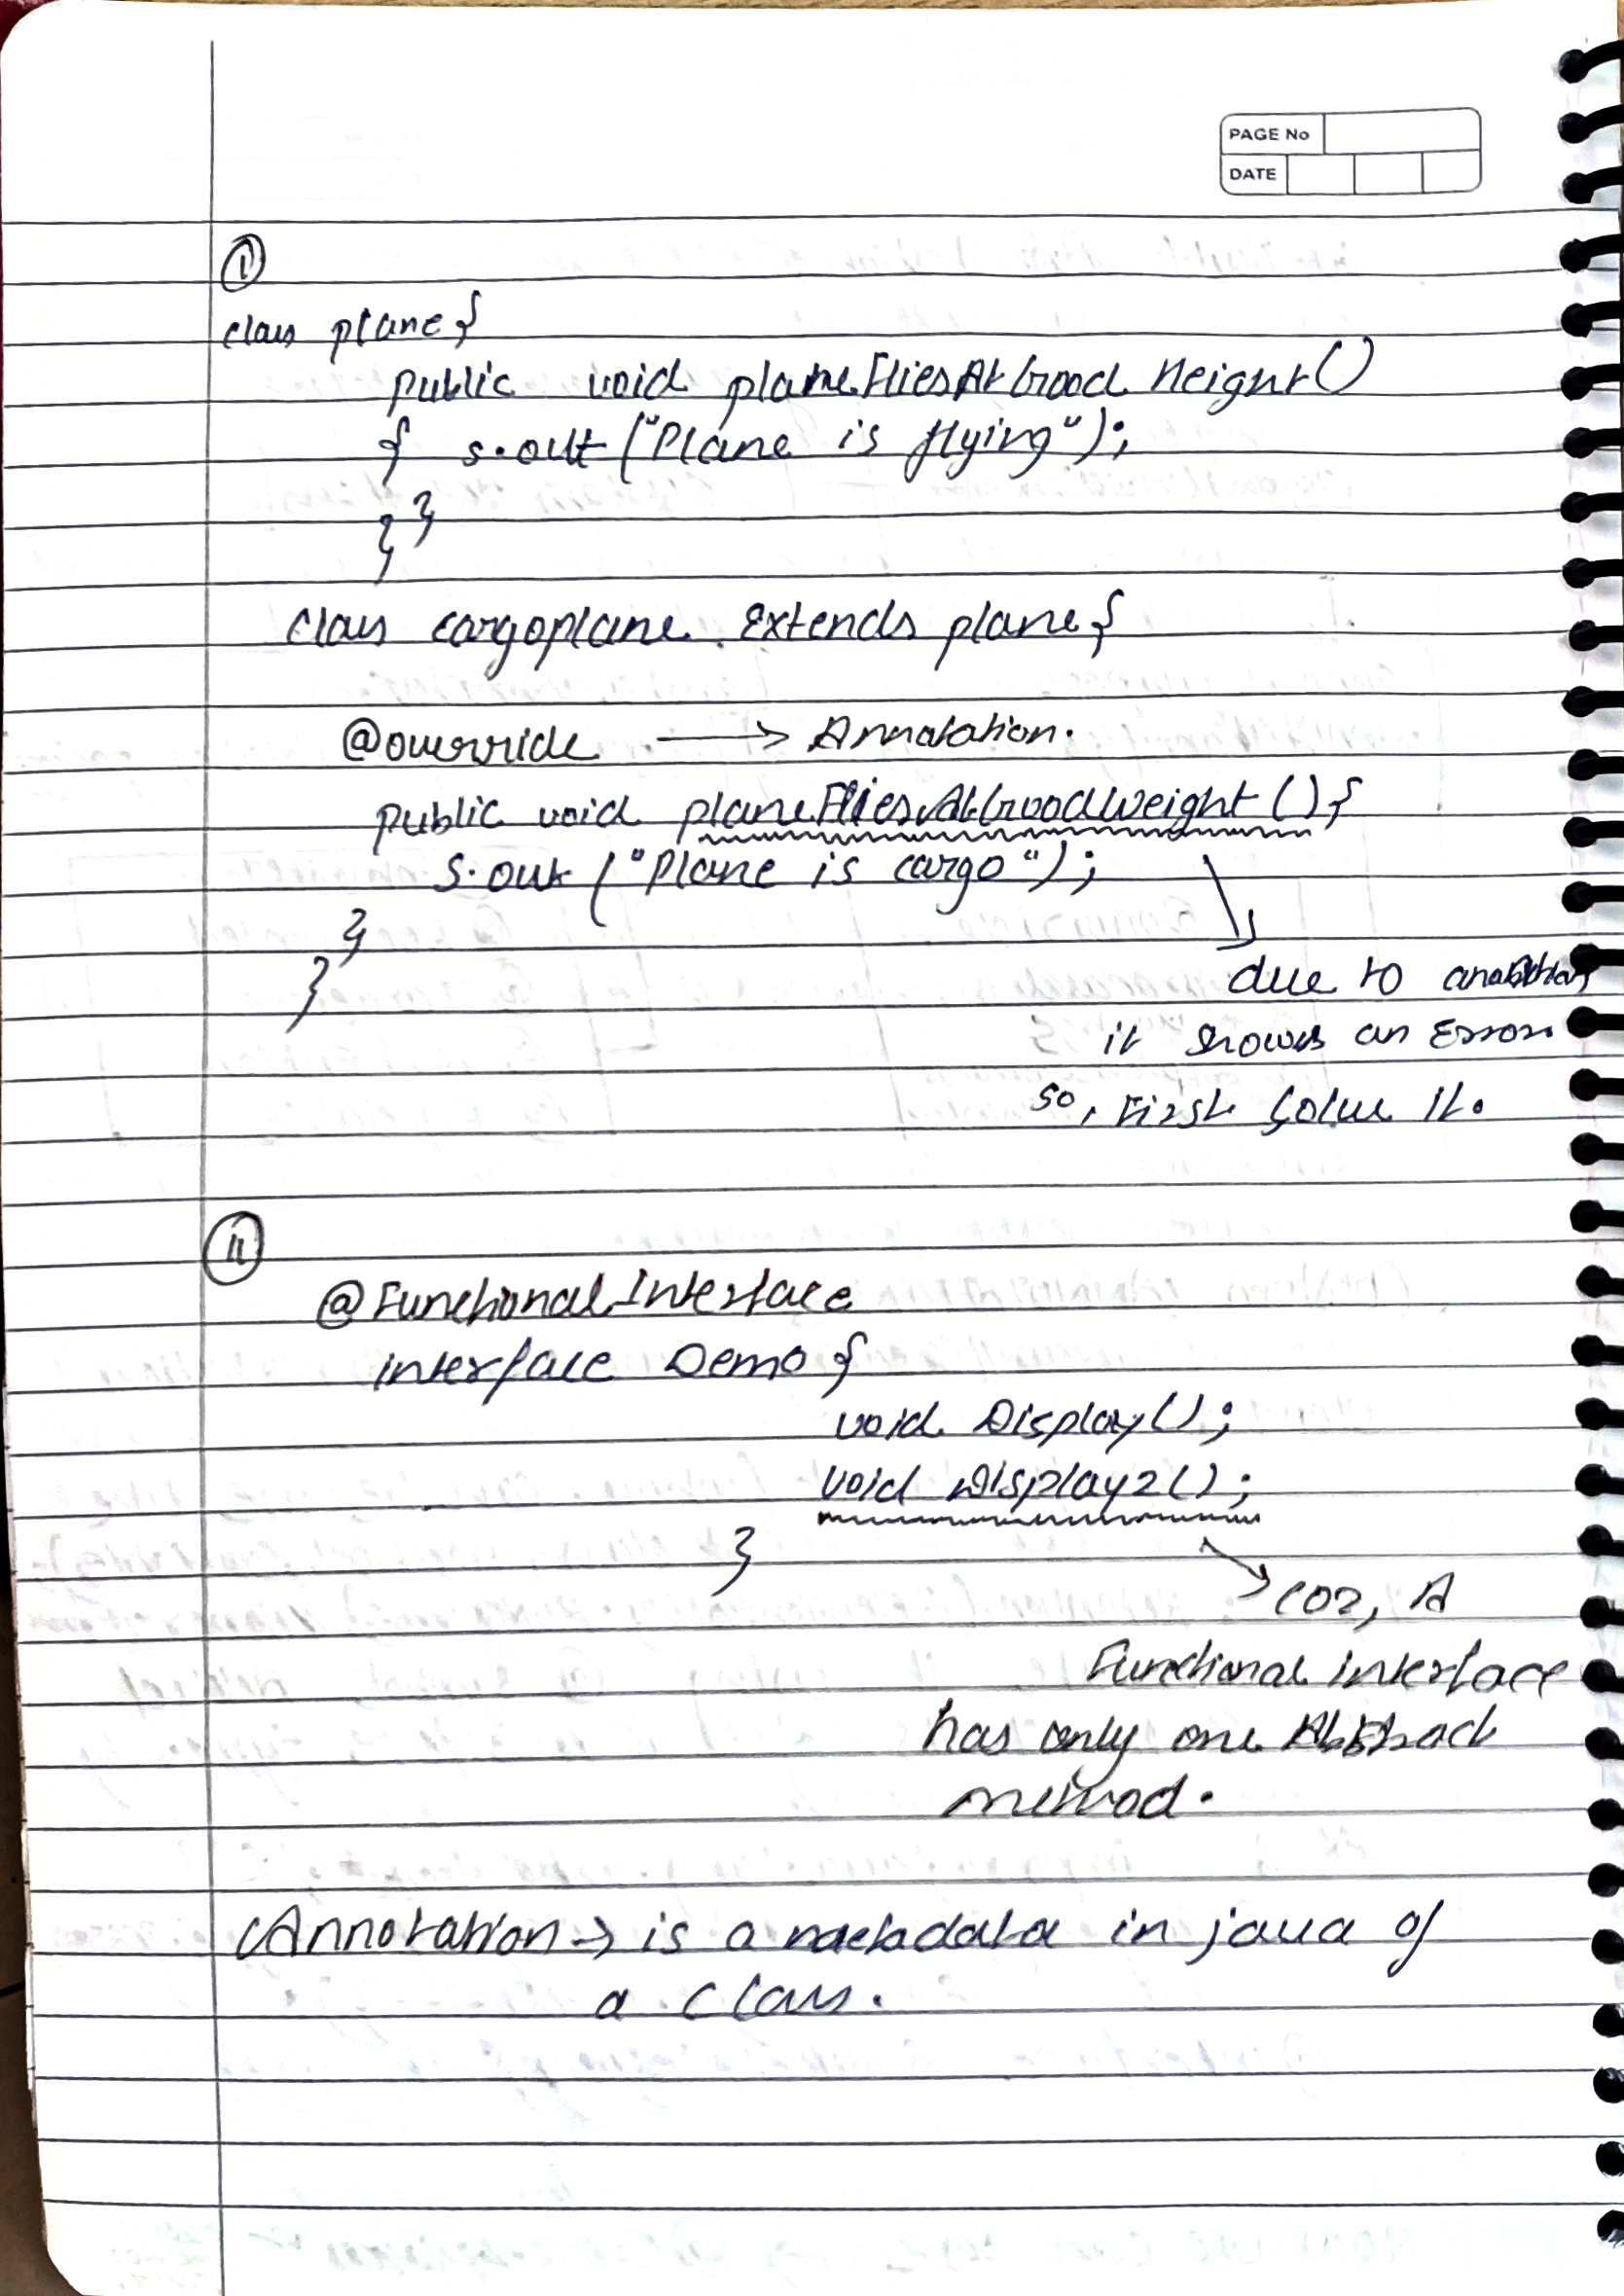 PAGE No
DATE
①
class plane {
public void planeFliesAtGoodHeight()
{ s.out ("Plane is flying");
}
}
class cargoplane extends plane {
@override → Annotation.
public void planeFliesAtGoodWeight () {
s.out ("Plane is cargo");
}
}
due to
it shows an Error
so, First solve it.
⑪
@FunctionalInterface
interface Demo {
void Display();
void Display2();
}
coz, A
Functional interface
has only one Abstract
method.
Annotation → is a metadata in java of
a class.